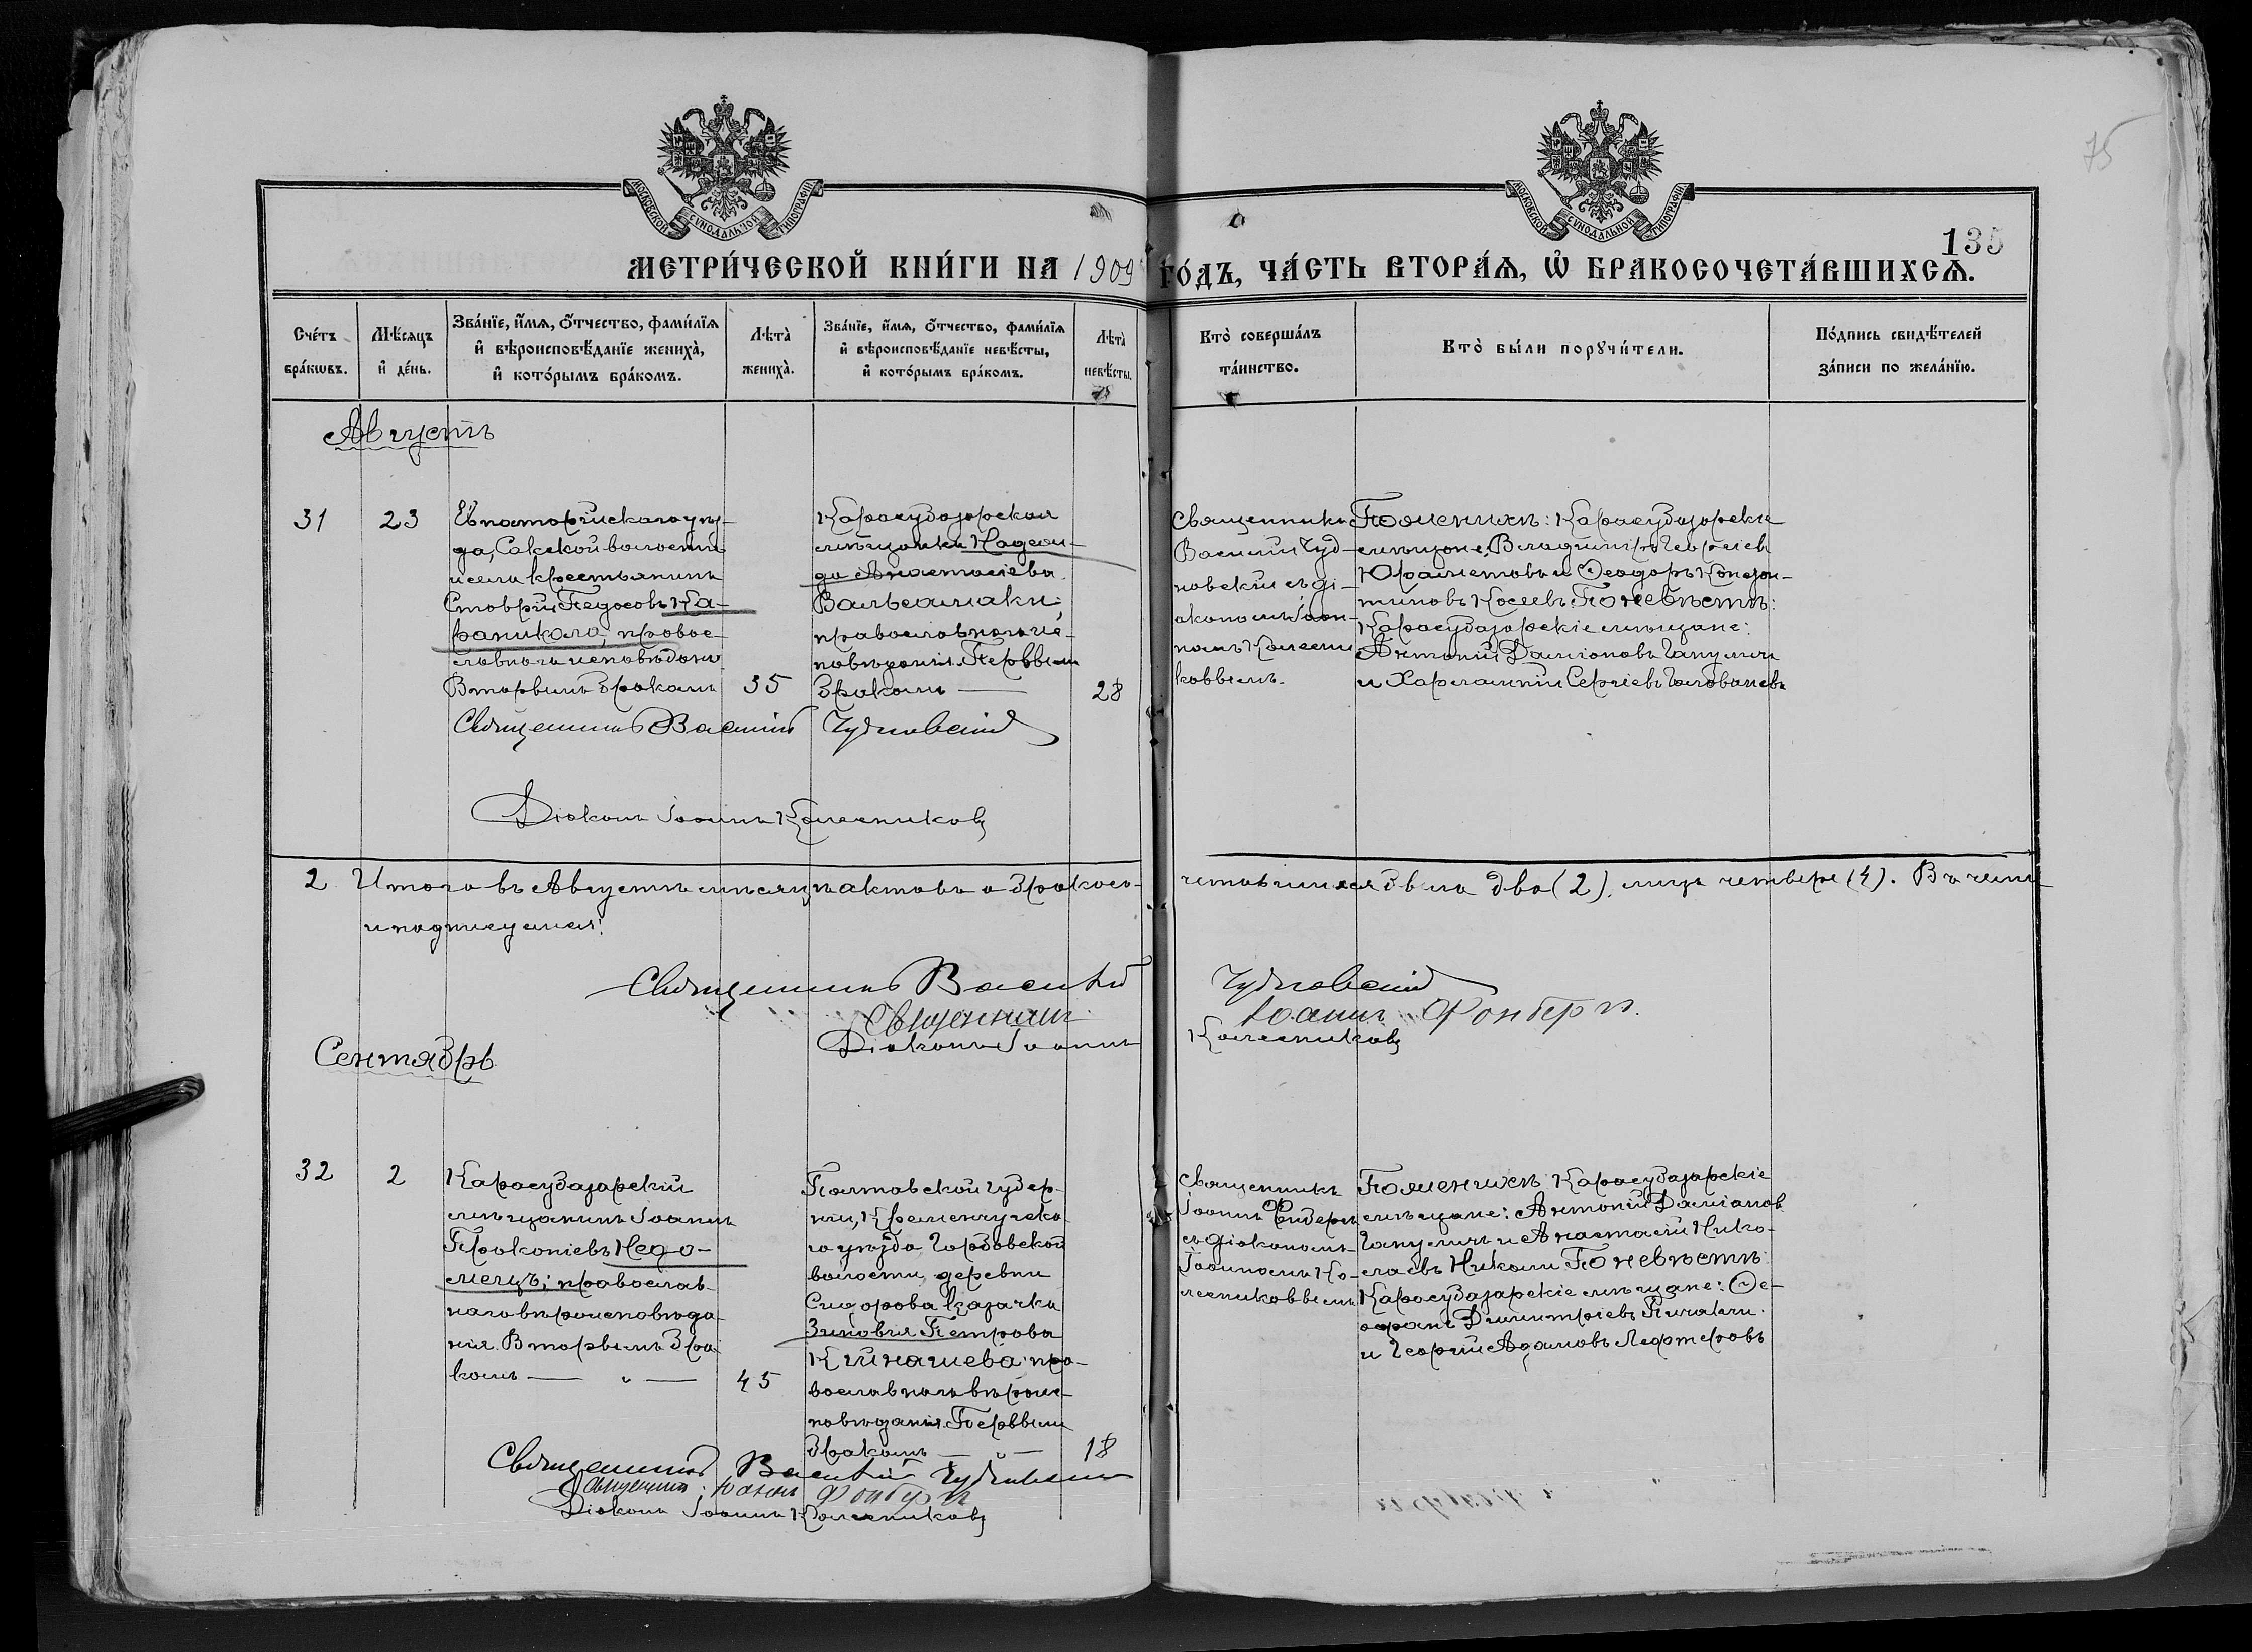 75
135
МОСКОВСКОЙ СУНОДАЛЬНОЙ ТИПОГРАФІИ
МОСКОВСКОЙ СУНОДАЛЬНОЙ ТИПОГРАФІИ
МЕТРИ́ЧЕСКОЙ КНИ́ГИ НА 1909 ГО́ДЪ, ЧА́СТЬ ВТОРА́Я, Ѡ҆ БРАКОСОЧЕТА́ВШИХСѦ.
Сче́тъ бра́кѡвъ.
Мѣ́сѧцъ и҆ де́нь.
Зва́нїе, и҆́мѧ, ѻ҆́тчество, фами́лїѧ
и҆ вѣроисповѣ́данїе жениха̀,
и҆ кото́рымъ бра́комъ.
Лѣта̀ жениха̀.
Зва́нїе, и҆́мѧ, ѻ҆́тчество, фами́лїѧ
и҆ вѣроисповѣ́данїе невѣ́сты,
и҆ кото́рымъ бра́комъ.
Лѣта̀ невѣ́сты.
Кто̀ соверша́лъ
та́инство.
Кто̀ бы́ли порꙋчи́тели.
По́дпись свидѣ́телей
за́писи по жела́нїю.
Августъ
31
23
Евпаторійскаго уѣз-
да, Сакской волости
и села крестьянинъ
Ставрій Ѳедосовъ Ка-
раникола, правос-
лавнаго исповѣданія
Вторымъ бракомъ
35
Карасубазарская
мѣщанка Надеж-
да Анастасіева
православнаго ис-
Первымъ
бракомъ —
28
Священникъ
Василій Чуд-
новскій съ ді-
акономъ Іоан-
номъ Колесни
ковымъ.
По женихѣ: Карасубазарскіе
мѣщане: Владиміръ Георгіев
Юраметовъ и Ѳеодоръ Констан-
тиновъ Косеевъ. По невѣстѣ:
Карасубазарскіе мѣщане:
Антоній Даміановъ
и Харлампій Сергіевъ
Священникъ Василій Чудновскій
Діаконъ Іоаннъ Колесниковъ
2
Итого въ Августѣ мѣсяцѣ актовъ о бракосо-
четавшихся было два (2), лицъ четверо (4). Въ чемъ
и подписуемся:
Священникъ Василій Чудновскій
Священникъ Іоаннъ Фонберг
Діаконъ Іоаннъ Колесниковъ
Сентябрь
32
2
Карасубазарскій
мѣщанинъ Іоаннъ
Прокопіевъ Недо-
мецъ; православ-
наго вѣроисповѣда-
нія. Вторымъ бра-
комъ — „ —
45
Полтавской губер-
ніи, Кременчугска-
го уѣзда
волости, деревни
Сидорова казачка
Зиновія Петрова
Кийнашева: пра-
вославнаго вѣроис-
повѣданія. Первымъ
бракомъ — „ —
18
Священникъ
Іоаннъ
съ діакономъ
Іоанномъ Ко-
лесниковымъ
По женихѣ: Карасубазарскіе
мѣщане: Антоній Даміанов
и Анастасій Нико-
лаевъ Николи. По невѣстѣ:
Карасубазарскіе мѣщане: Ѳе-
офанъ Димитріевъ
и Георгій Адамовъ Лефтеровъ
Священникъ Василій Чудновскій
Священникъ Іоаннъ Фонберг
Діаконъ Іоаннъ Колесниковъ